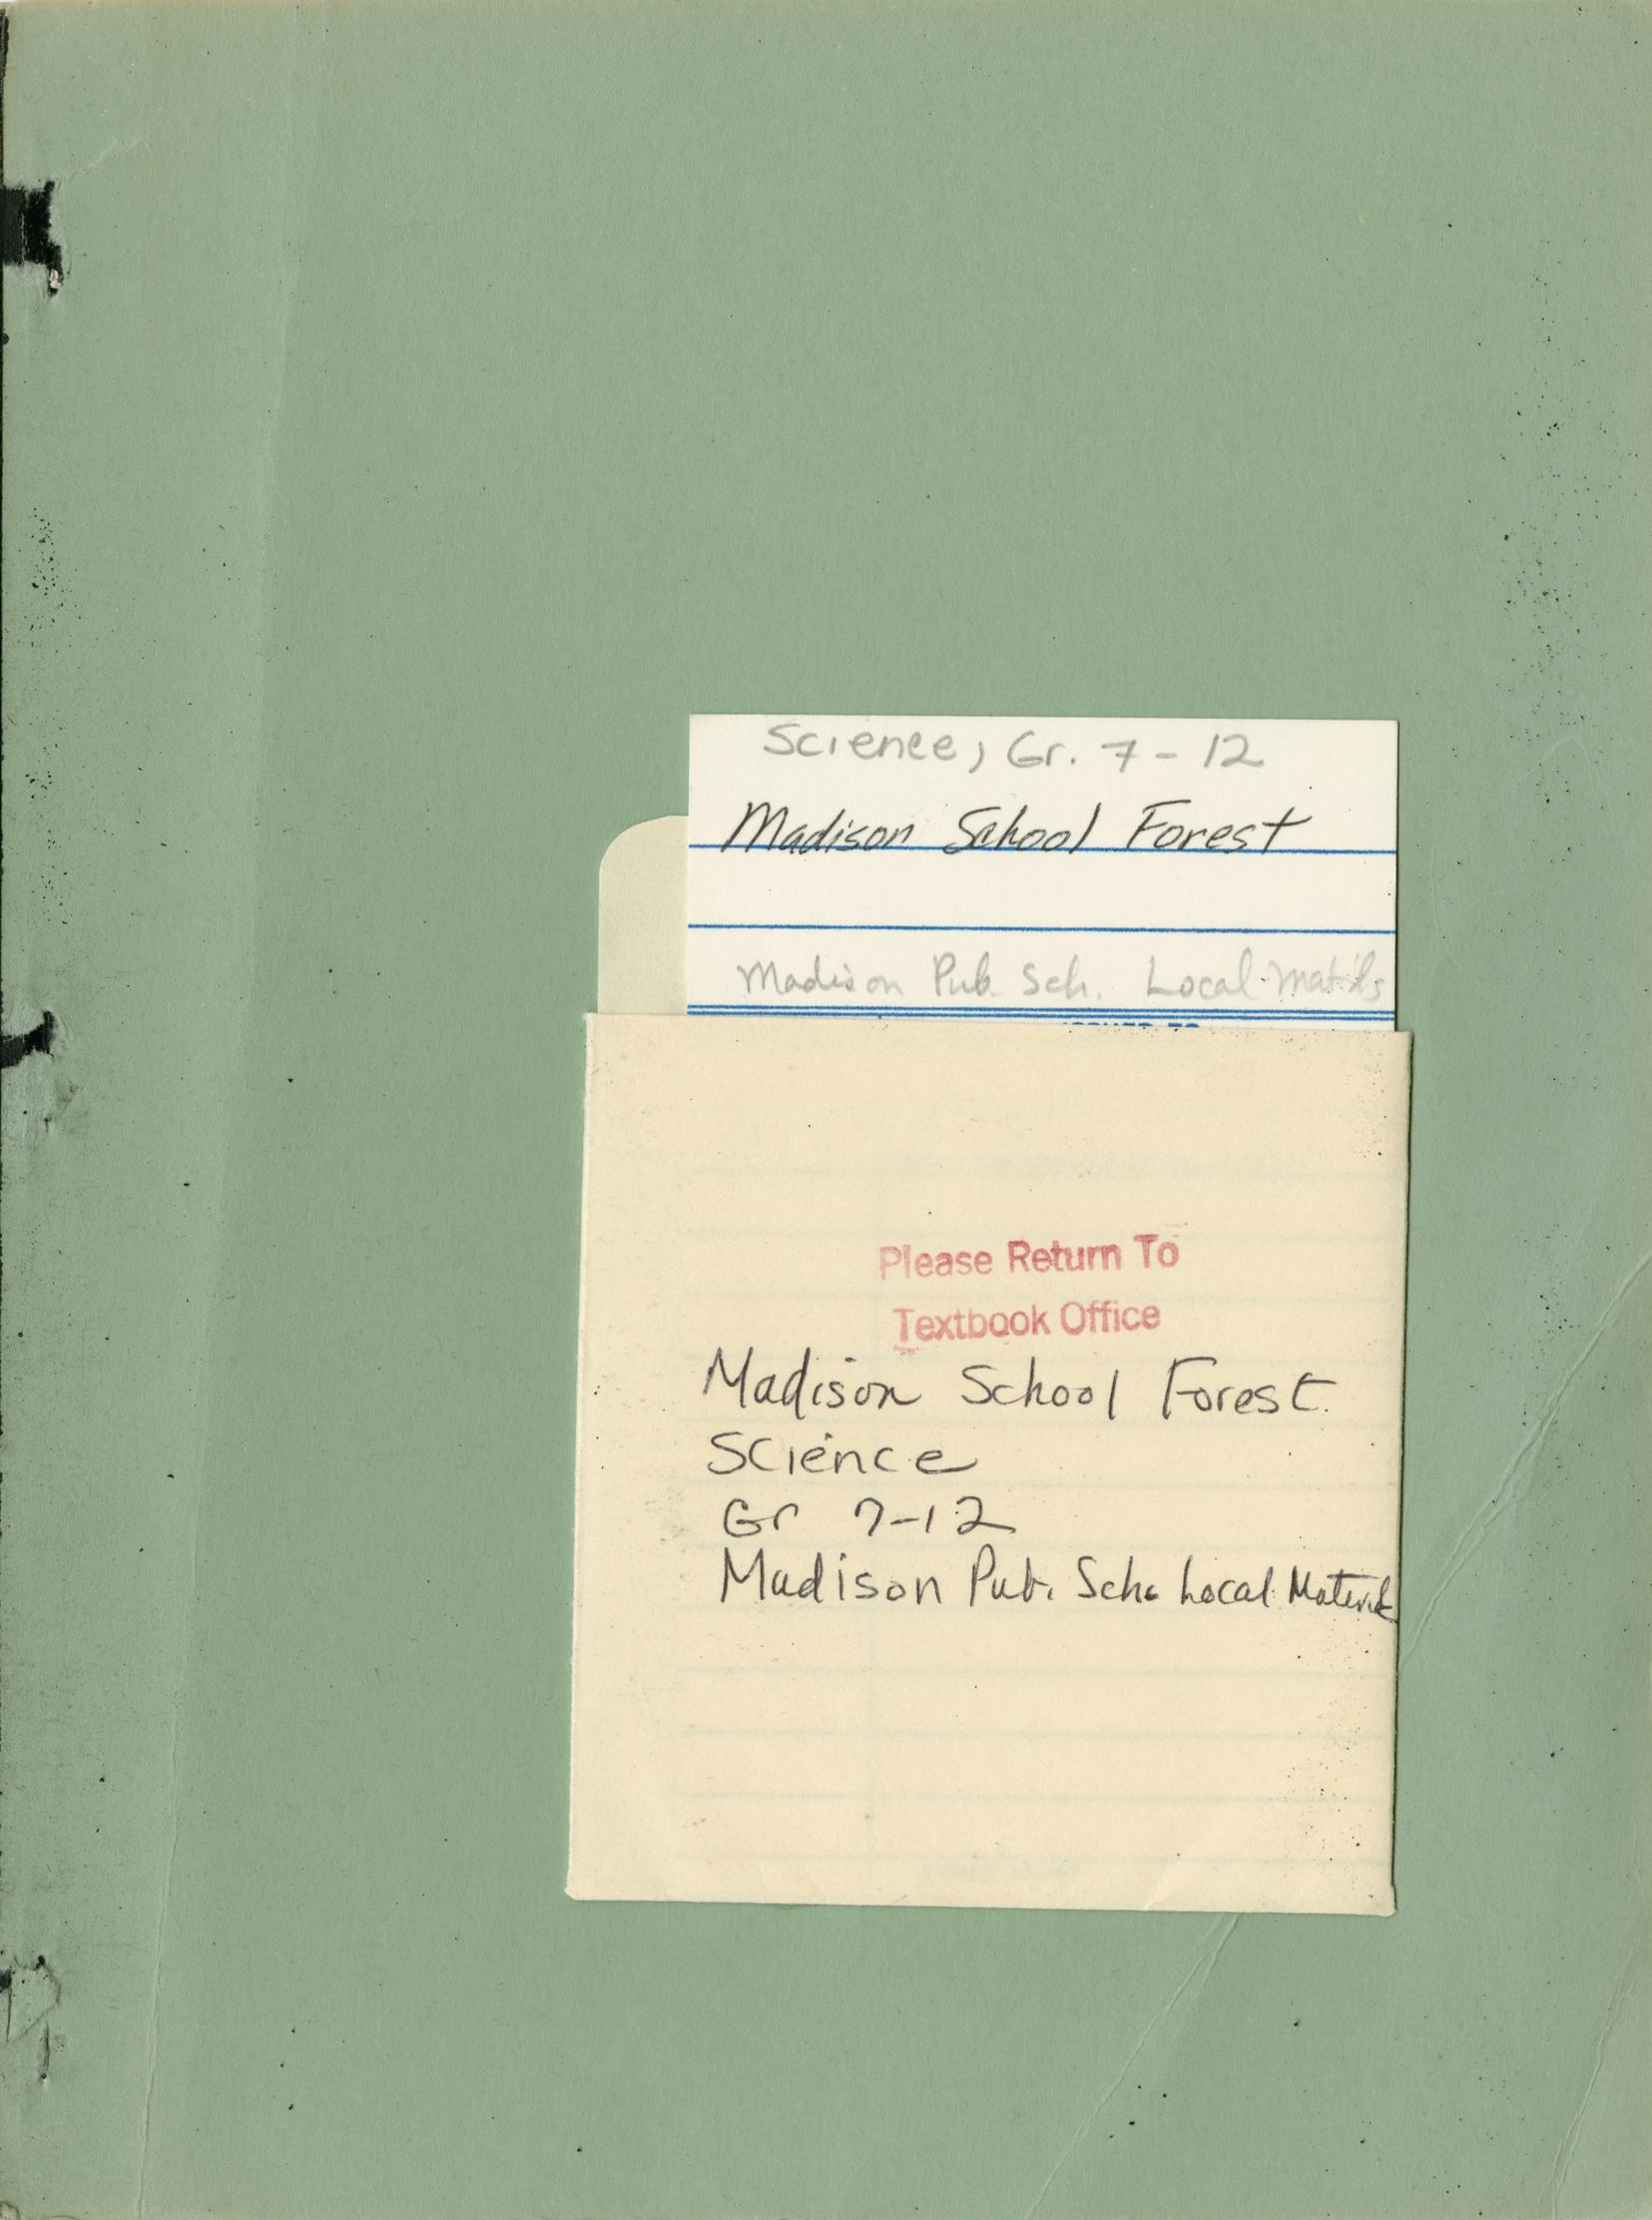 Science, Gr. 7-12
Madison School Forest
Madison Pub. Sch. Local Mat'ls
Please Return To
Textbook Office
Madison School Forest
Science
Gr 7-12
Madison Pub. Sch. Local